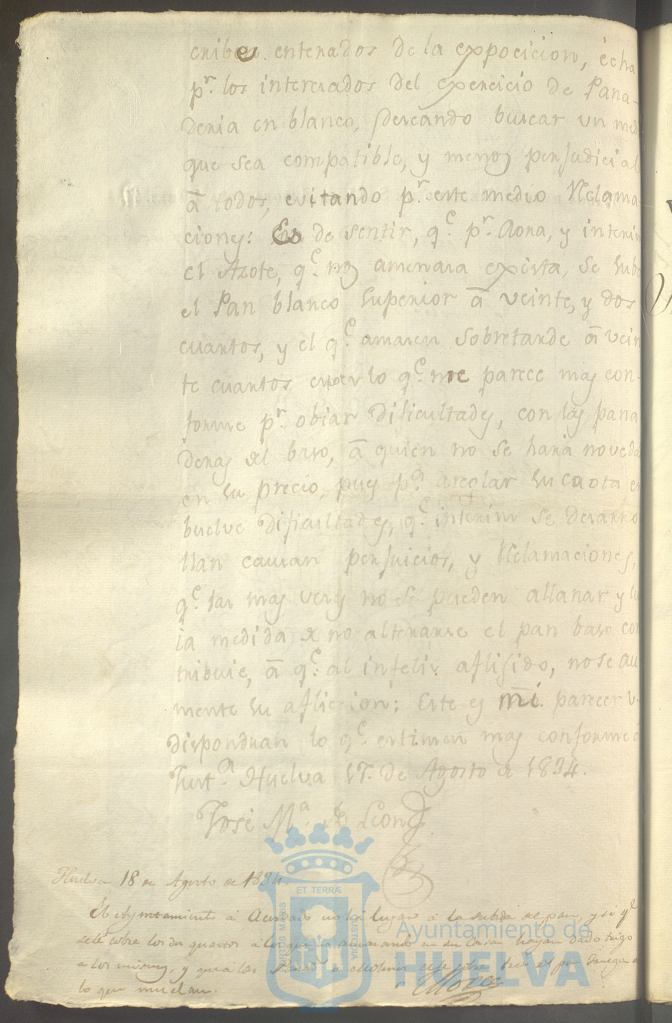 cribe enterados de la expocicion, écha
pr. los interesados del exercicio de Pana-
deria en blanco, deseando buscar un med
que sea compatible, y menos perjudicial
â todos, evitando pr. este medio reclama
ciones: Es de sentir, qe. pr. Aora, y interin
el Azote, qe. nos amenasa exista, se suba
el Pan blanco superior â veinte, y dos
cuartos, y el qe. amasen sobretarde â vein
te cuartos, ques lo qe. me parece mas con-
forme pr. obiar dificultades, con las pana
deras del baso, â quien no se hará noveda
en su precio, pues pa. areglar su cuota en
buelve dificultades, qe. interin se desarro
llan causan perjuicios, y reclamaciones,
qe. las mas veces no se pueden allanar y
la medida de no alterarse el pan baso con
tribuie, â qe. al infeliz aflijido, no se au
mente su afliccion: Este es mi parecer V.
dispondran lo qe. estimen mas conforme â
Justa. Huelva 17. de Agosto de 1834.
José Ma. de Leon
Huelva 18 de Agosto de 1834
El Ayuntamiento â Acordado no ha lugar â la subida de pan, y si qe.
se le cobre los dos quartos a los que la amasando en su casa hayan dado trigo
a los mismos, y que a las
lo que muelan.
ET TERRAE
PORTUS MARIS
CUSTODIA
Ayuntamiento de
HUELVA